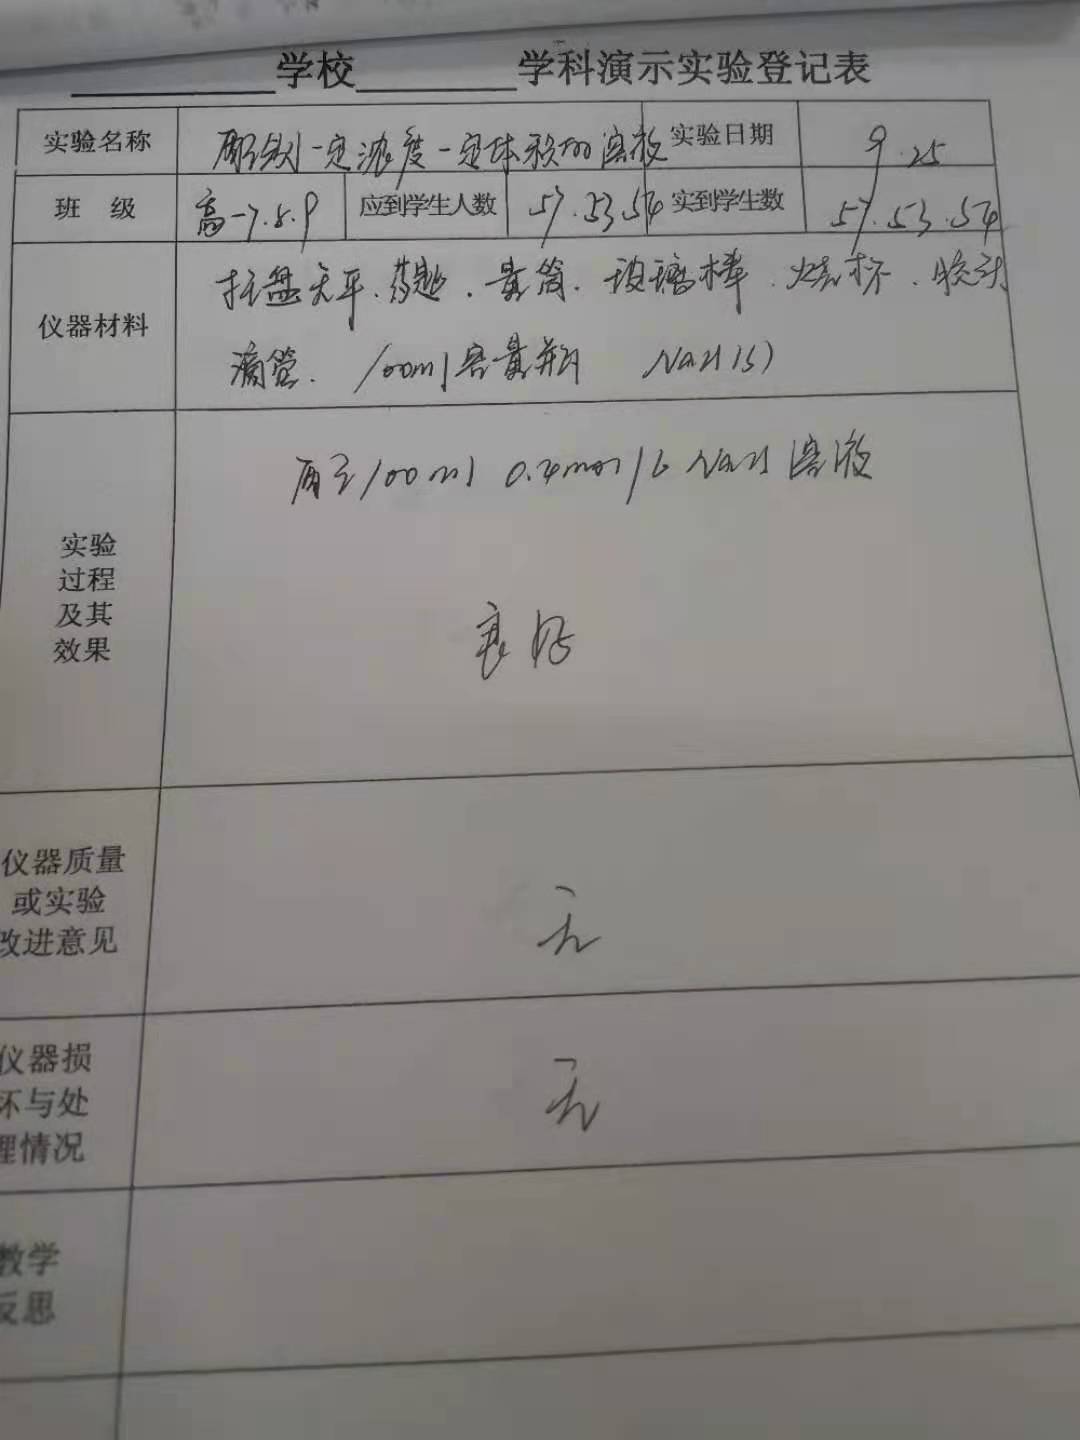 学校 学科演示实验登记表
实验名称 配制一定浓度一定体积的溶液 实验日期 9.25
班 级 高一7.8.9 应到学生人数 57.53.54 实到学生数 57.53.54
托盘天平.药匙.量筒.玻璃棒.烧杯.胶头
仪器材料
滴管. 100ml容量瓶 NaCl(s)
配制100ml 0.4mol/L NaCl溶液
实验
过程
及其
效果
良好
仪器质量
或实验
改进意见
无
仪器损
坏与处
理情况
无
教学
反思